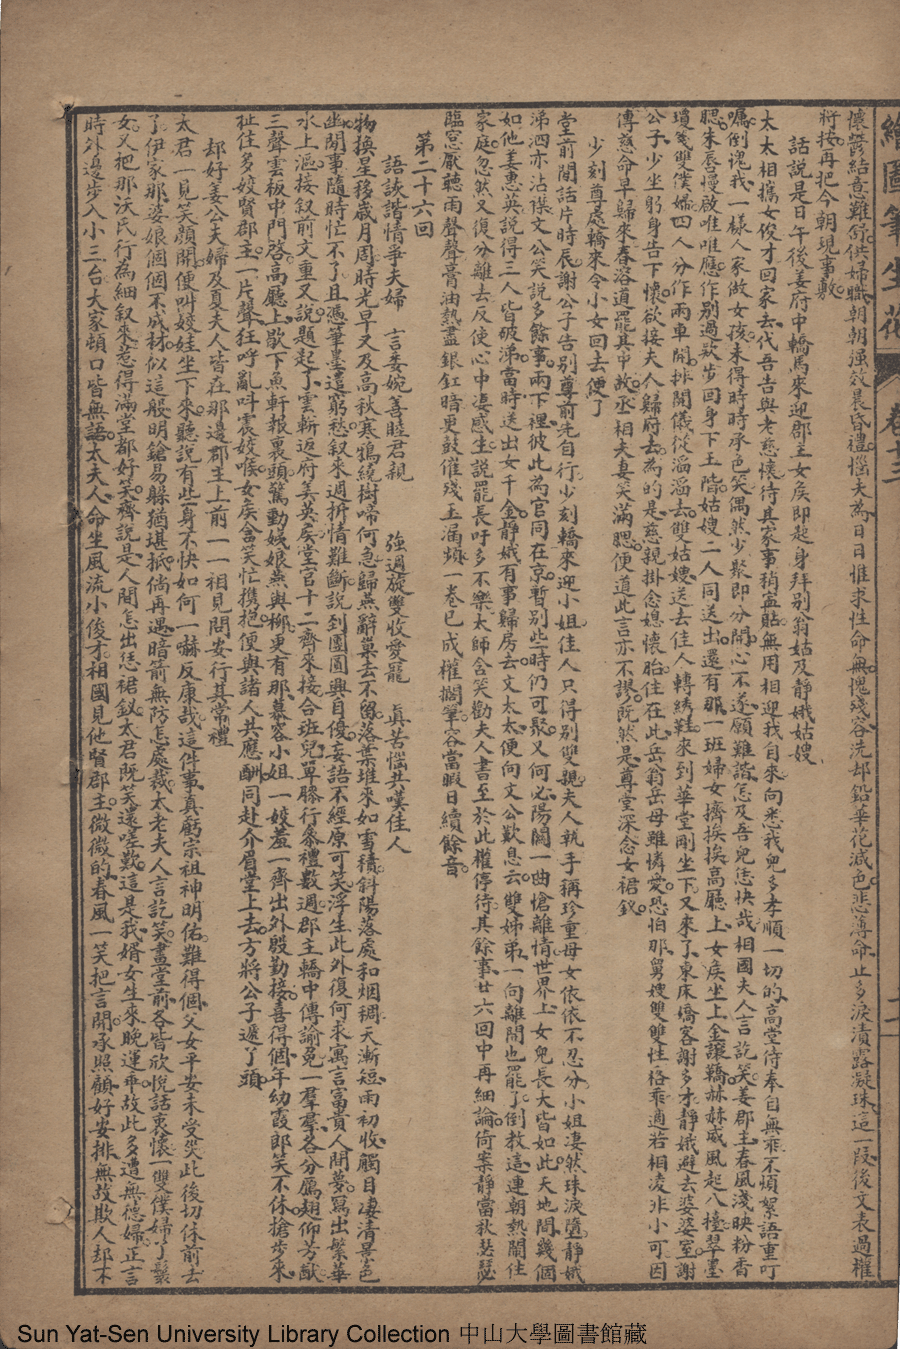 繪圖筆生花 卷十三
懷鬱結意難舒供婦職朝朝强效晨昏禮惱夫為日日惟求性命無愧殘容洗却鉛華花減色悲薄命止多淚漬露凝珠這一段後文表過權
將按再把今朝現事敷
話說是日午後姜府中轎馬來迎郡主女矦即起身拜別翁姑及靜娥姑嫂
太太相攜女俊才回家去代吾吉與老慈懷待其家事稍寍貼無用相迎我自來向悉我兒多孝順一切的高堂侍奉自無乖不煩絮語重叮
囑倒愧我一樣人家做女孩未得時時承色笑偶然少聚即分開心不遂願難諧怎及吾兒恁快哉相國夫人言訖笑姜郡主春風淺映粉香
腮朱唇慢啟唯唯應作別過欵步回身下玉階姑嫂二人同送出還有那一班婦女擠挨挨高廳上女矦坐上金讓轎赫赫威風起八檯翠墨
瓊箋雙僕婦四人分作兩車開排開儀從滔滔去雙姑嫂送去佳人轉綉鞋來到華堂剛坐下又來了東床嬌客謝多才靜娥避去婆婆室謝
公子少坐躬身告下懷欲接夫人歸府去為的是慈親掛念媳懷胎住在此岳翁岳母雖憐愛恐怕那舅嫂雙雙性格乖適若相凌非小可因
傳慈命早歸來春溶道罷其中故丞相夫妻笑滿腮便道此言亦不謬既然是尊堂深念女裙釵
少刻尊處轎來令小女回去便了
堂前閒話片時辰謝公子告別尊前先自行少刻轎來迎小姐佳人只得別雙親夫人執手稱珍重母女依依不忍分小姐凄然珠淚墮靜娥
涕泗亦沾襟文公笑說多餘事兩下裡彼此為官同在京暫別些時仍可聚又何必陽關一曲愴離情世界上女兒長大皆如此天地間幾個
如他姜惠英說得三人皆破涕當時送出女千金靜娥有事歸房去文太太便向文公歎息云雙姊弟一向離開也罷了倒教這連朝熱鬧住
家庭忽然又復分離去反使心中凄感生說罷長吁多不樂太師含笑勸夫人書至於此權停待其餘事廿六回中再細論倚案靜當秋瑟瑟
臨窓厭聽雨聲聲膏油熱盡銀釭暗更鼓催殘玉漏頻一卷已成權擱筆容當暇日續餘音
第二十六回
語談諧情爭夫婦 言委婉善睦君親 強週旋雙收愛寵 眞苦惱共嘆佳人
物換星移歲月周時光早又及高秋寒鴉繞樹啼何急歸燕辭巢去不留落葉堆來如雪積斜陽落處和烟稠天漸短雨初收觸目淒清景色
幽閒事隨時忙不了且憑筆墨這窮愁叙來週折情難斷說到團圓興自優妄語不經原可笑浮生此外復何求寓言富貴人間夢寫出繁華
水上漚接叙前文重又說題起了雲靳返府姜英矦堂官十二齊來接合班兒單膝行叅禮數週郡主轎中傳諭免一羣羣各分鴈翅仰芳猷
三聲雲板中門啓高廳上歇下魚軒報裏頭驚動娀娘燕與栁更有那慕容小姐一姣羞一齊出外殷勤接喜得個年幼霞郎笑不休搶步來
扯住多姣賢郡主一片聲狂呼亂呌震姣喉女矦含笑忙携抱便與諸人共應酬同赴介眉堂上去方將公子遞了頭
却好姜公夫婦及莫夫人皆在那邊郡主上前一一相見問安行其常禮
太君一見笑顏開便叫姣娃坐下來聽說有些身不快如何一嚇反康哉這件事真虧宗祖神明佑難得個父女平安未受災此後切休前去
了伊家那婆娘個個不成材似這般明鎗易躲猶堪抵倘再遇暗箭無防怎處裁太老夫人言訖笑畫堂前各皆欣悅話衷懷一雙僕婦丫鬟
女又把那沃氏行為細叙來惹得滿堂都好笑齊說是人間怎出恁裙釵太君既笑還嗟歎這是我婿女生來晚運乖故此多遭無德婦正言
時外邊步入小三台大家頓口皆無語太夫人命坐風流小俊才相國見他賢郡主微微的春風一笑把言開承照顧好安排無故欺人却不
Sun Yat-Sen University Library Collection 中山大學圖書館藏